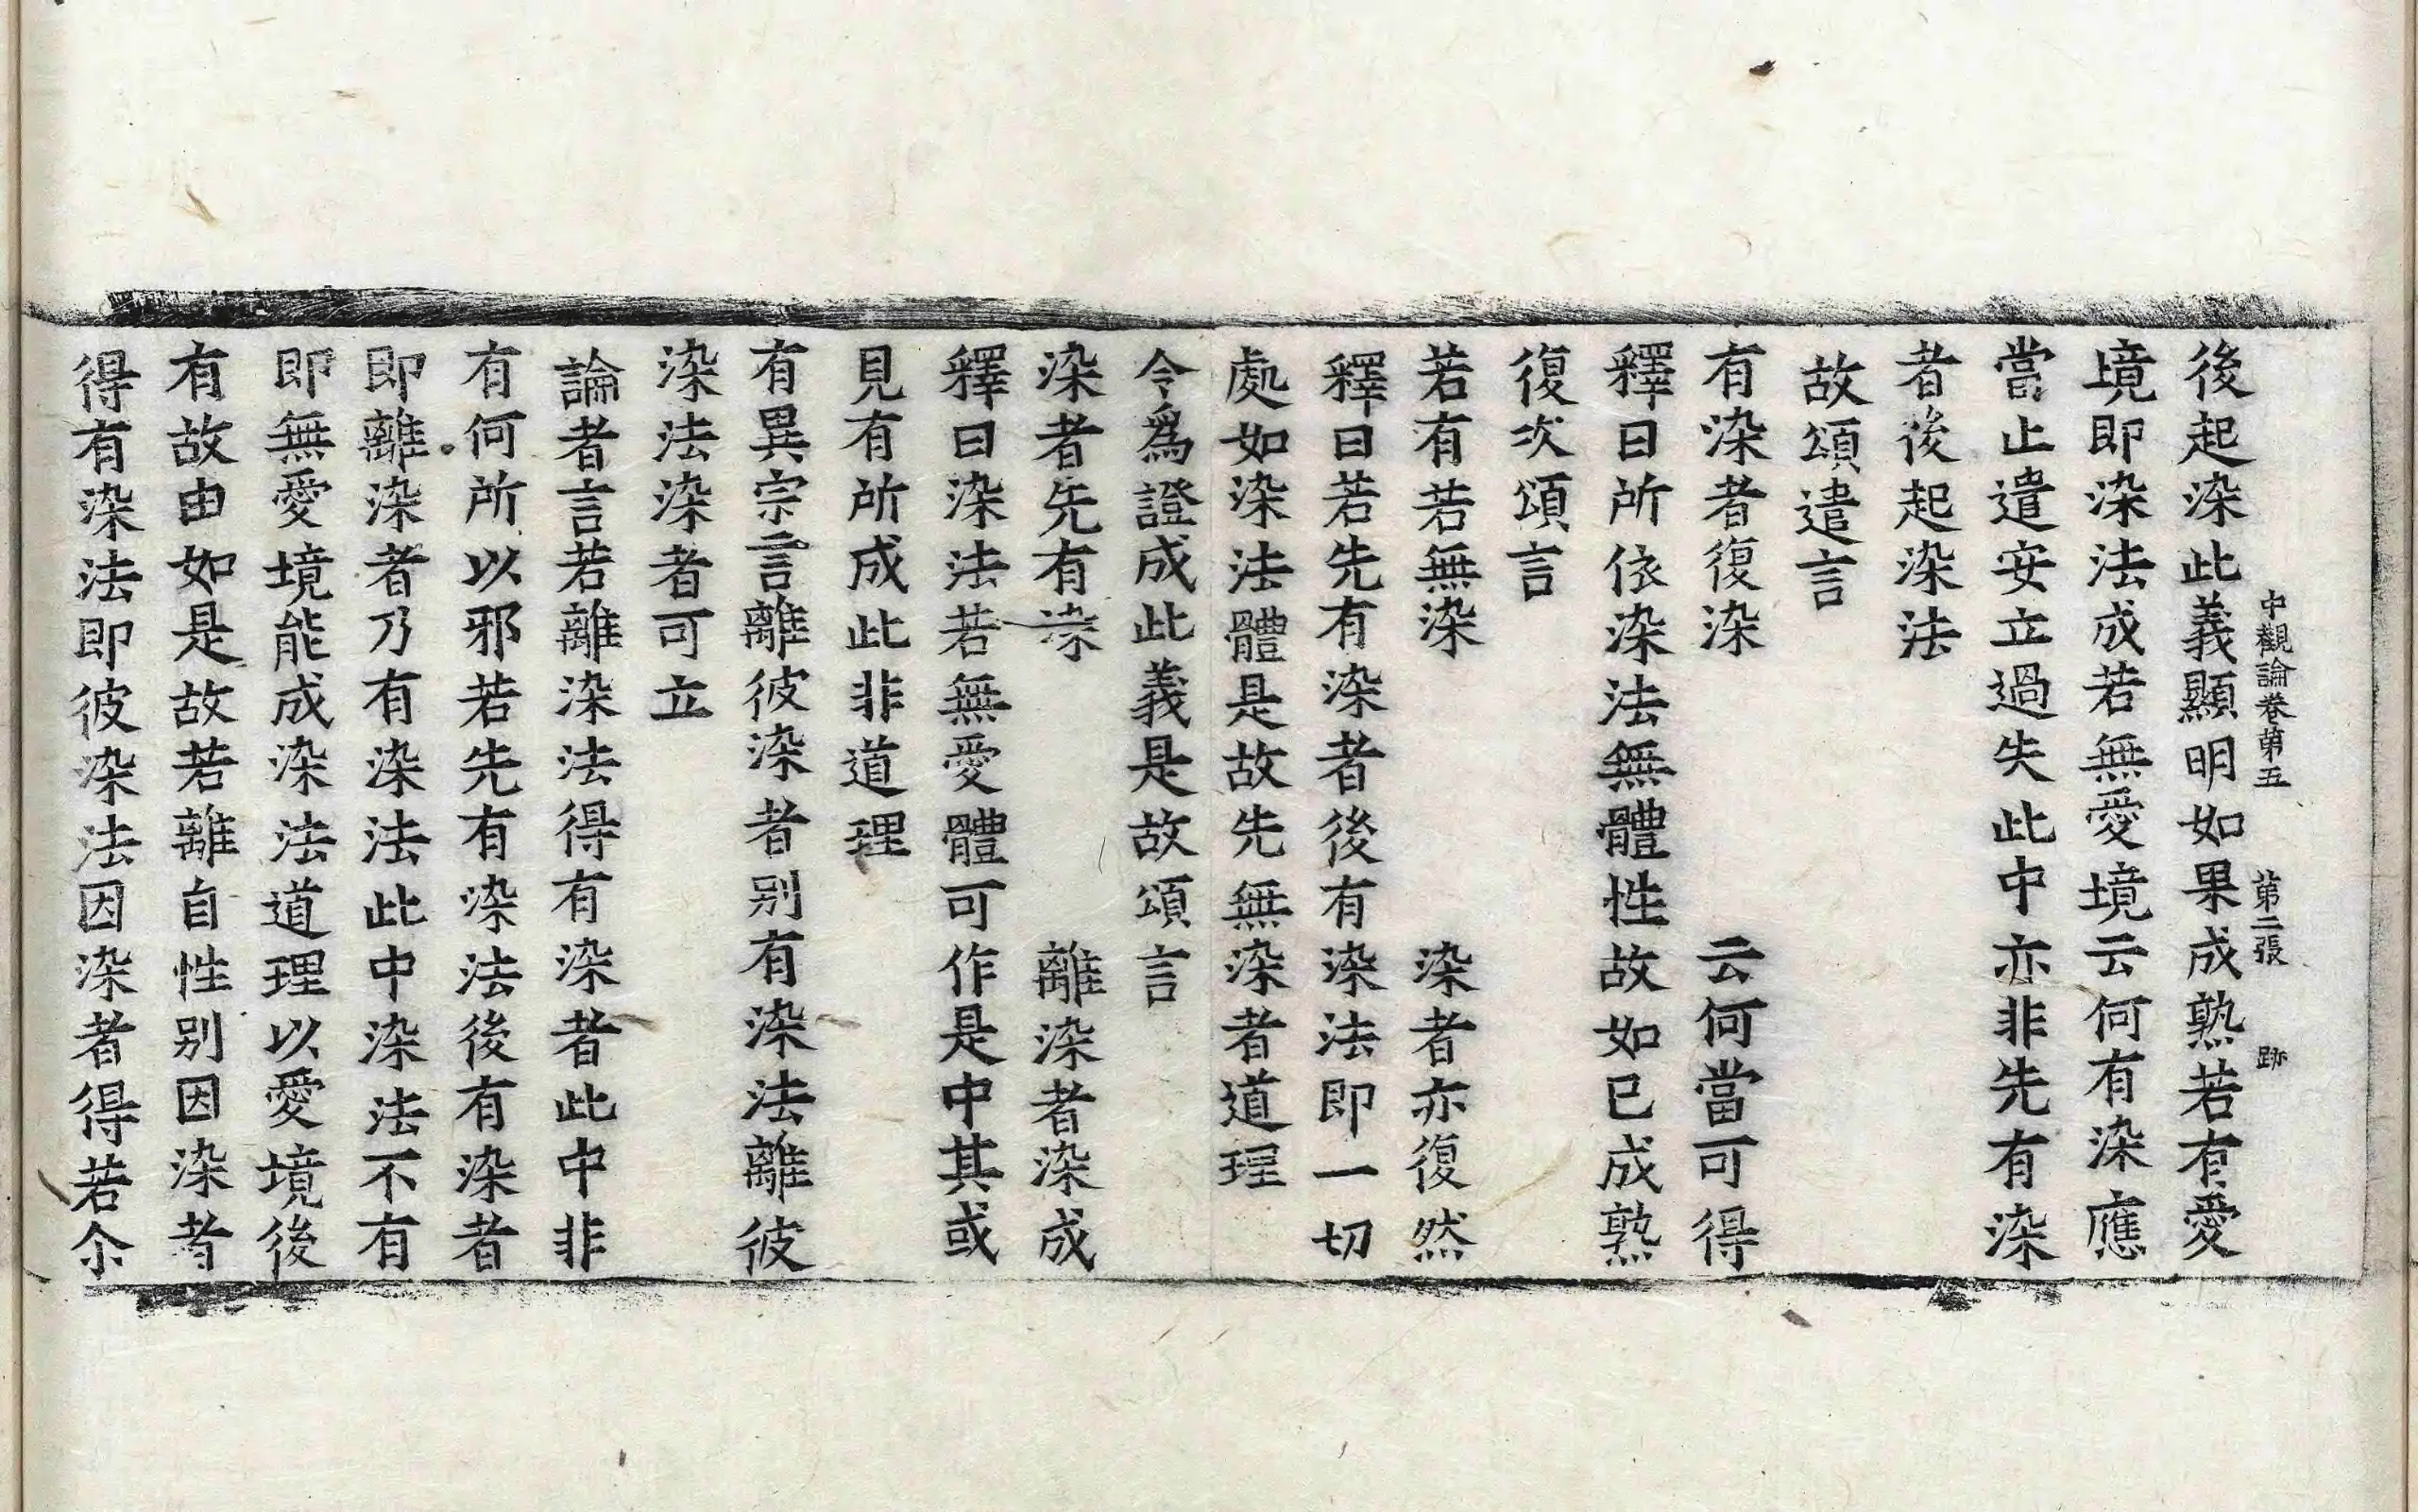 中觀論卷第五　第二張　跡
後起染此義顯明如果成熟若有愛
境即染法成若無愛境云何有染應
當止遣安立過失此中亦非先有染
者後起染法
故頌遣言
有染者復染　云何當可得
釋曰所依染法無體性故如已成熟
復次頌言
若有若無染　染者亦復然
釋曰若先有染者後有染法即一切
處如染法體是故先無染者道理
令爲證成此義是故頌言
染者先有染　離染者染成
釋曰染法若無愛體可作是中其或
見有所成此非道理
有異宗言離彼染者别有染法離彼
染法染者可立
論者言若離染法得有染者此中非
有何所以邪若先有染法後有染者
即離染者乃有染法此中染法不有
即無愛境能成染法道理以愛境後
有故由如是故若離自性别因染者
得有染法即彼染法因染者得若尒